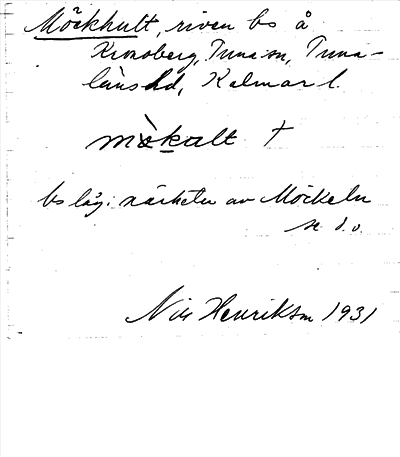 Möckhult, riven bs å
Kronoberg, Tuna sn, Tuna-
läns hd, Kalmar l.
mòkalt †
bs låg i närheten av Möckeln
se d. o.
Nils Henriksson 1931